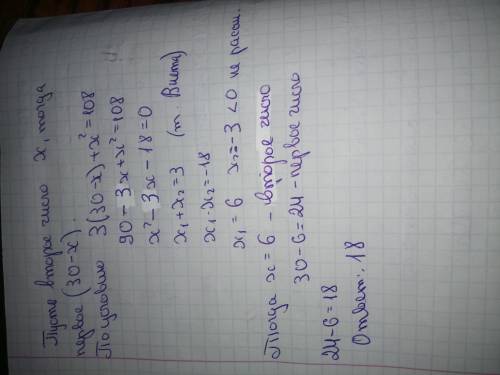 Пусть второе число x, тогда
первое (30-x).
По условию 3(30-x)+x²=108
90-3x+x²=108
x²-3x-18=0
x₁+x₂=3 (т. Виета)
x₁·x₂=-18
x₁=6 x₂=-3<0 не рассм.
Тогда x=6 - второе число
30-6=24 - первое число
24-6=18
Ответ: 18